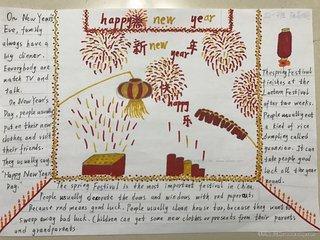 happy new year
新年
new
year
快
happy
乐
On New Year's
Eve, family
always have a
big dinner.
Everybody are
watch TV and
talk.
On New Year's
Day, people usually
put on their new
clothes and visit
their friends.
They usually say
"Happy New Year's
Day."
The spring Festival
finishes at the
Lantern Festival
after two weeks.
People usually eat
a kind of rice
dumpling called
yuanxiao. It can
take people good
luck all the year
round.
The spring Festival is the most important festival in China.
People usually decorate the doors and windows with red papercuts.
Because red means good luck. People usually clean house too, because they want to
sweep away bad luck. Children can get some new clothes or presents from their parents
and grandparents